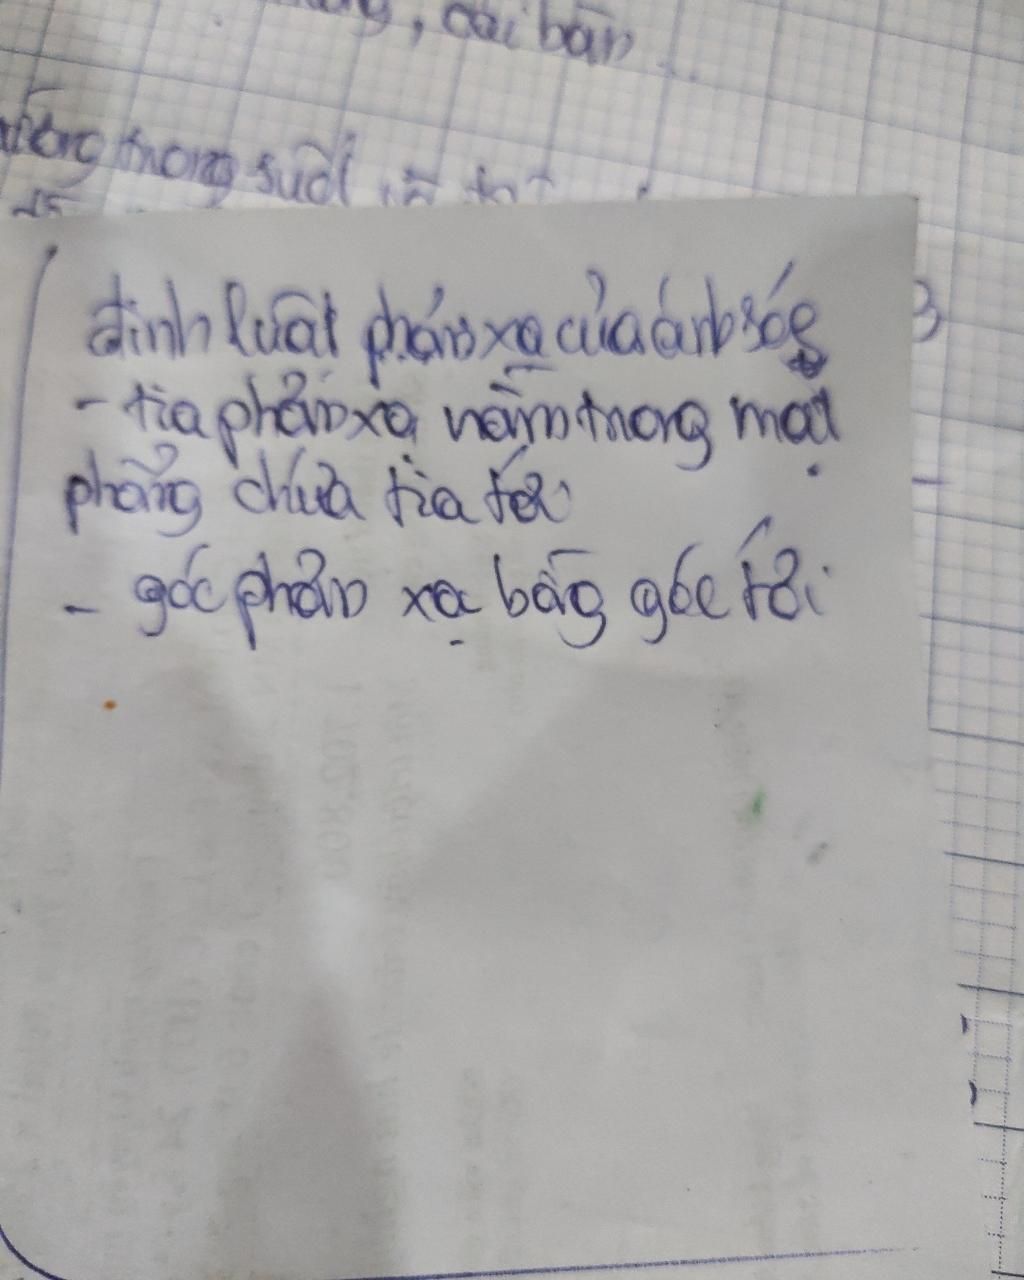 , cái bàn
trong suốt
định luật phản xạ của ánh sáng
- tia phản xạ nằm trong mặt
phẳng chứa tia tới
- góc phản xạ bằng góc tới